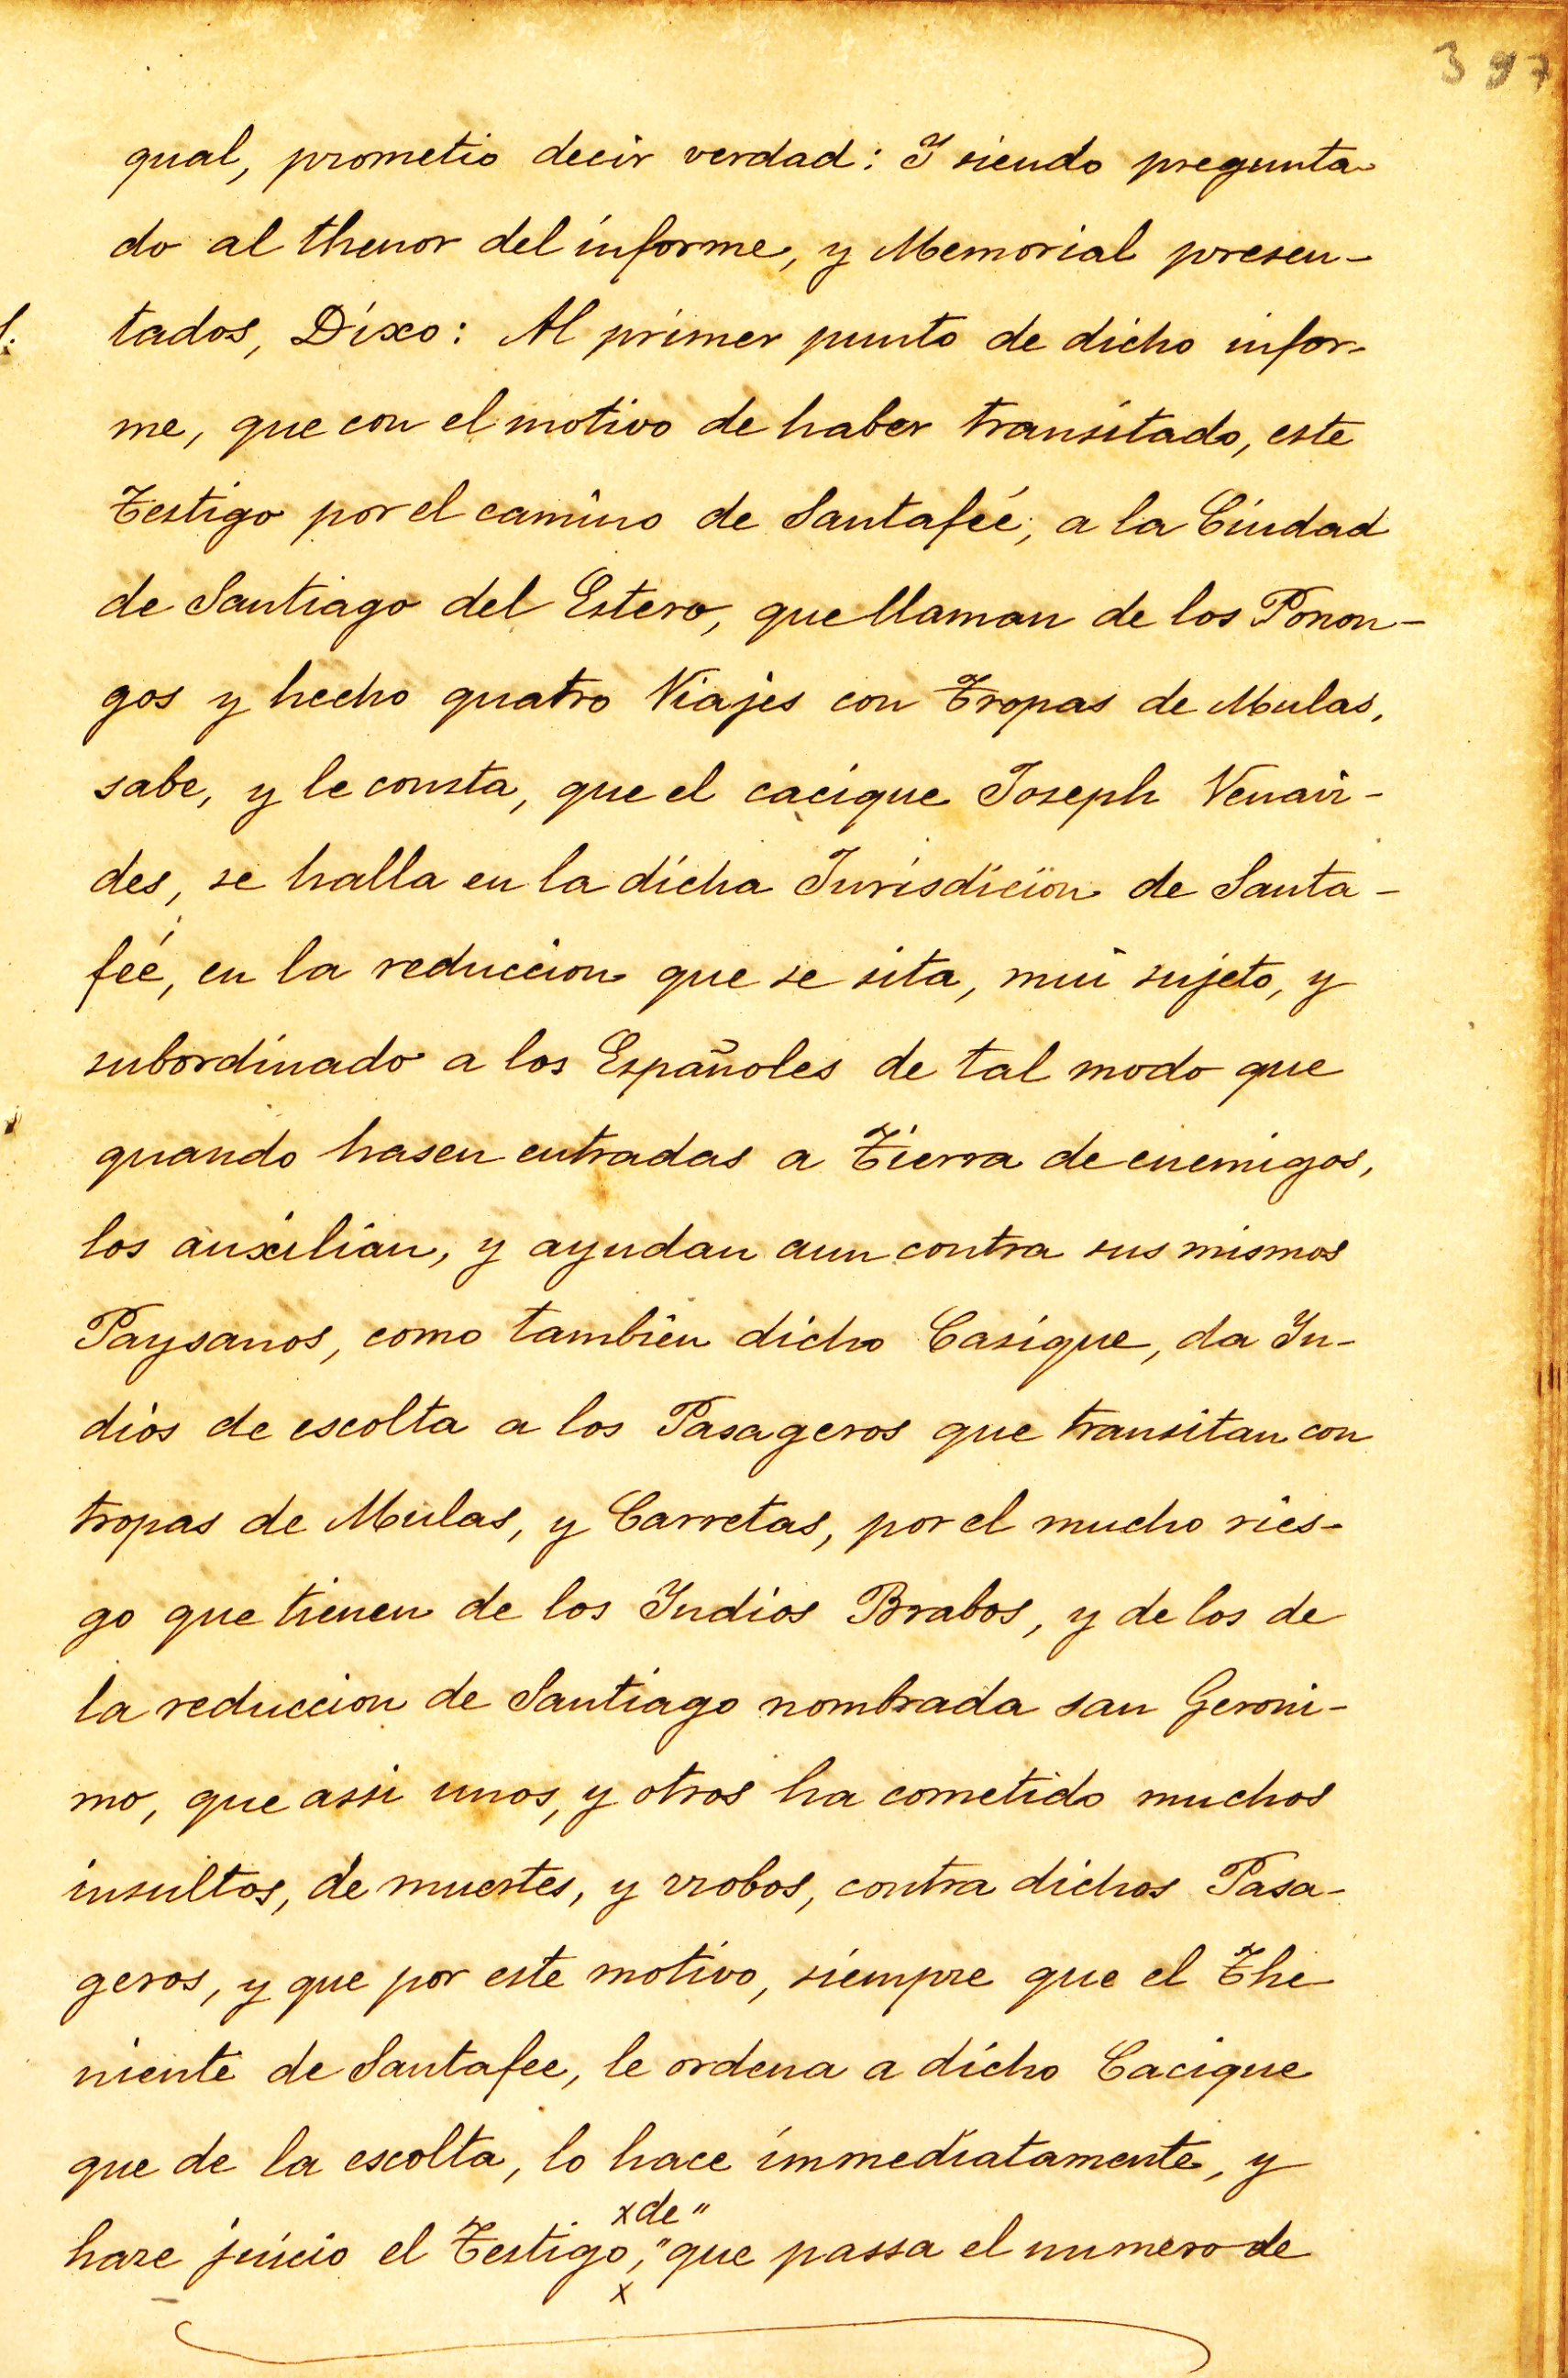 397
qual, prometio decir verdad: I siendo pregunta-
do al thenor del informe, y Memorial presen-
tados, Dixo: Al primer punto de dicho infor-
me, que con el motivo de haber transitado, este
Testigo por el camino de Santafeé, a la Ciudad
de Santiago del Estero, que llaman de los Poron-
gos y hecho quatro Viajes con Tropas de Mulas,
sabe, y le consta, que el cacique Joseph Venavi-
des, se halla en la dicha Jurisdicion de Santa-
feé, en la reduccion que se sita, mui sujeto, y
subordinado a los Españoles de tal modo que
quando hasen entradas a Tierra de enemigos,
los auxilian, y ayudan aun contra sus mismos
Paysanos, como tambien dicho Casique, da In-
dios de escolta a los Pasageros que transitan con
tropas de Mulas, y Carretas, por el mucho ries-
go que tienen de los Indios Brabos, y de los de
la reduccion de Santiago nombrada san Geroni-
mo, que assi unos, y otros ha cometido muchos
insultos, de muertes, y rrobos, contra dichos Pasa-
geros, y que por este motivo, siempre que el The-
niente de Santafee, le ordena a dicho Cacique
que de la escolta, lo hace immediatamente, y
x de "
haze juicio el Testigo, " que passa el numero de
x